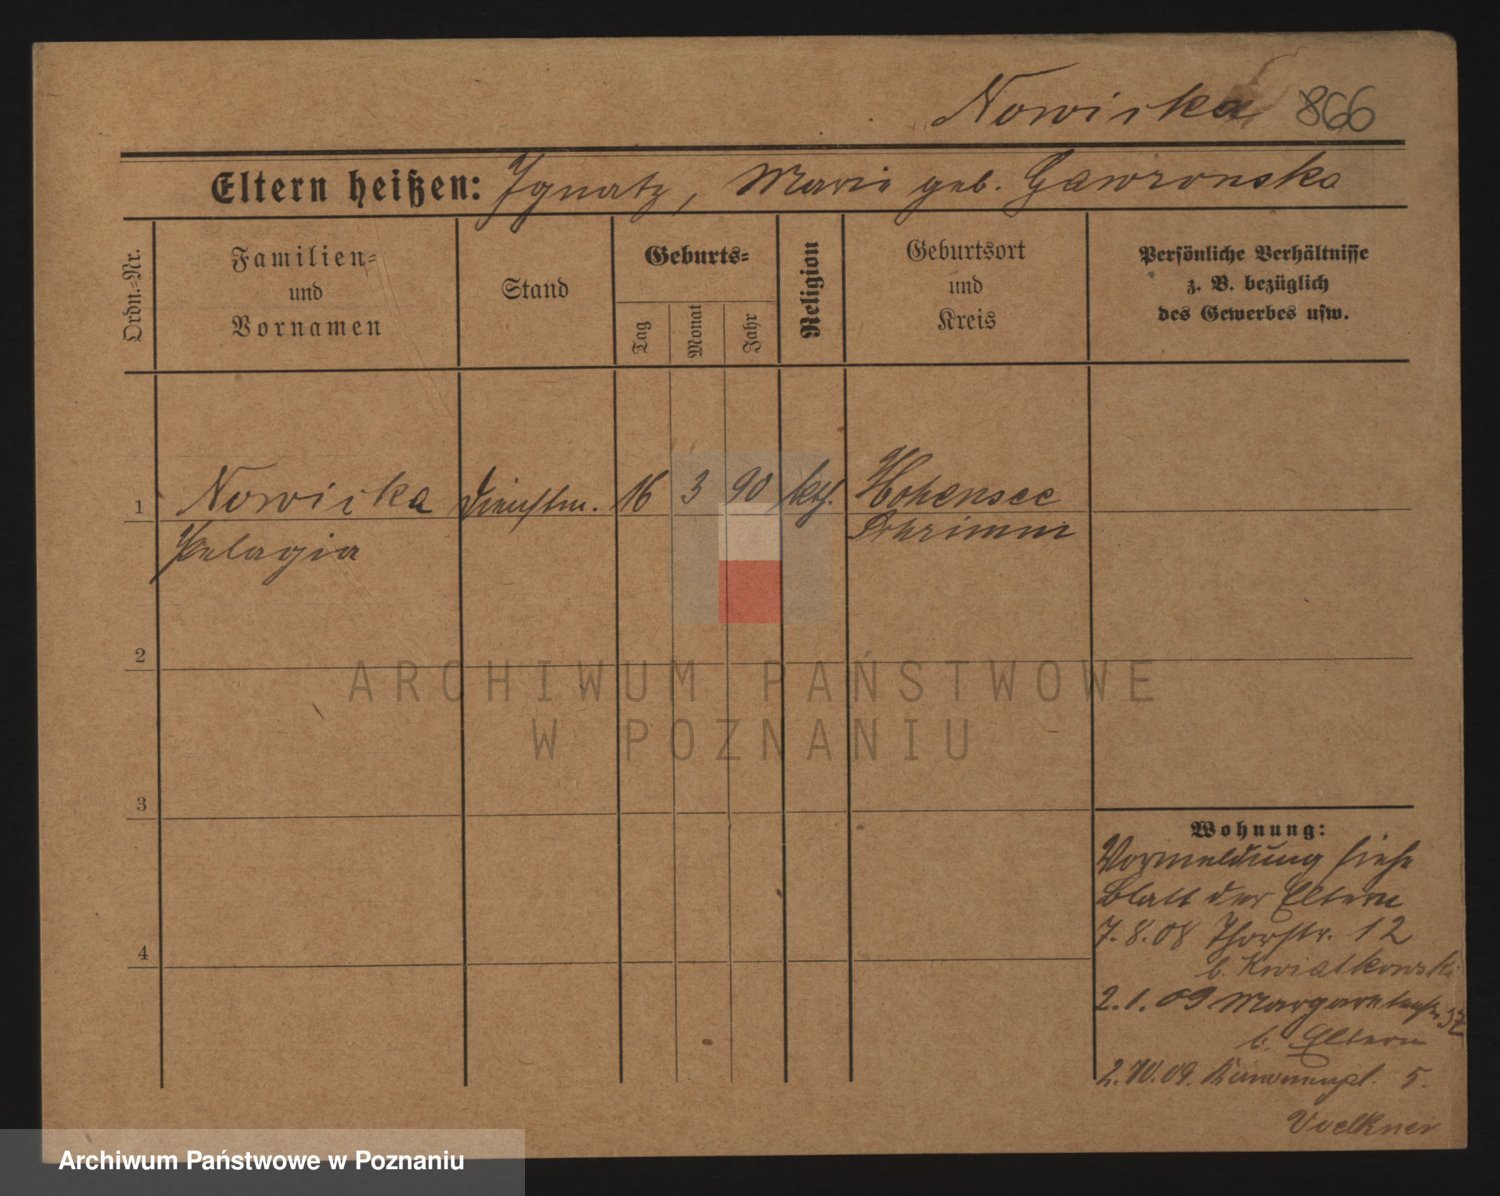 Nowicka 866
Eltern heißen: Ignatz, Marie geb. Gawronska
Ordn.-Nr.
Familien-
und
Vornamen
Stand
Geburts-
Tag
Monat
Jahr
Religion
Geburtsort
und
Kreis
Persönliche Verhältnisse
z. B. bezüglich
des Gewerbes usw.
1 Nowicka Dienstm. 16 3 90 kth. Hohensee
Pelagia Schrimm
2
3
4
Wohnung:
Vormeldung siehe
Blatt der Eltern
7.8.08 Thorstr. 12
b. Kwiatkowski
2.1.09 Margaretenstr. 37
b. Eltern
2.10.09. 5.
Voelkner
ARCHIWUM PAŃSTWOWE
W POZNANIU
Archiwum Państwowe w Poznaniu